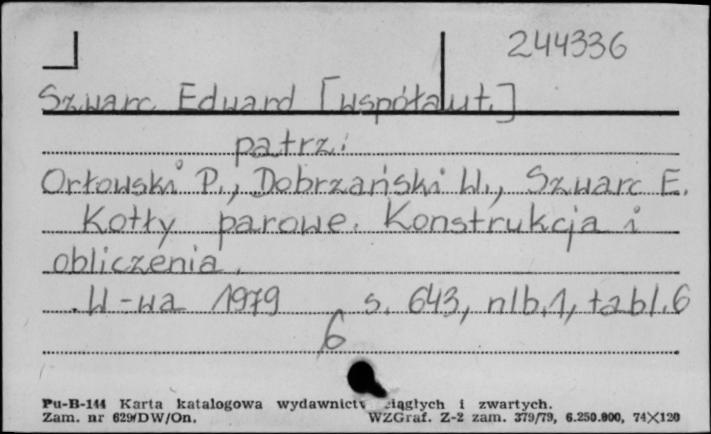 244336
Szwarc Eduard [współaut.]
patrz:
Orłowski P., Dobrzański W., Szwarc E.
Kotły parowe. Konstrukcja i
obliczenia.
W-wa 1979 s. 643, nlb.1, tabl.6
6
Pu-B-144 Karta katalogowa wydawnictw ciągłych i zwartych.
Zam. nr 629/DW/On. WZGraf. Z-2 zam. 379/79, 6.250.000, 74×120